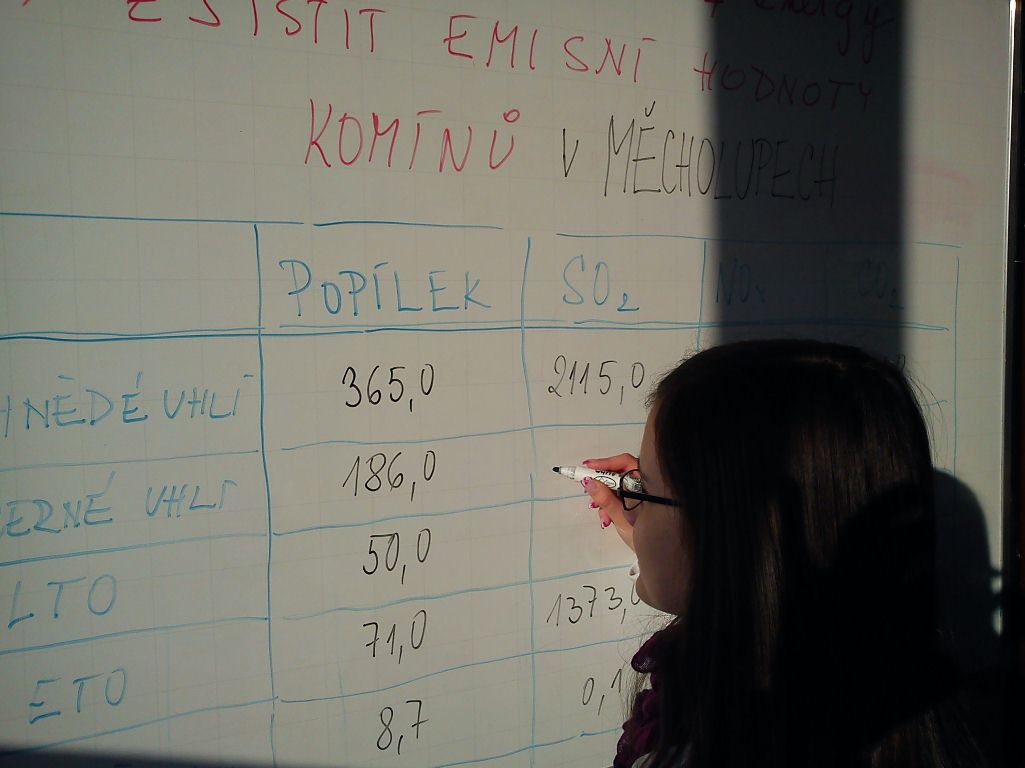 ZJISTIT EMISNÍ HODNOTY
KOMÍNŮ V MĚCHOLUPECH
POPÍLEK SO₂ NOₓ CO₂
HNĚDÉ UHLÍ 365,0 2115,0
ČERNÉ UHLÍ 186,0
LTO 50,0
ETO 71,0 1373,0
8,7 0,1